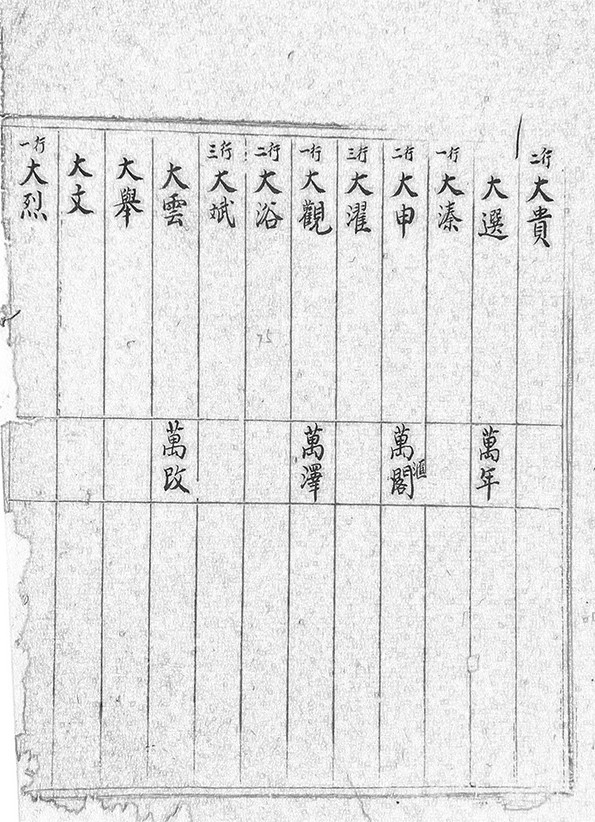 二行大貴
大選
一行大溱
二行大申
三行大濯
一行大觀
二行大浴
三行大斌
大雲
大舉
大文
一行大烈
萬年
萬閣滙
萬澤
萬改